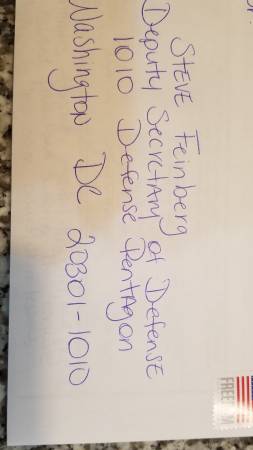 Steve Feinberg
Deputy Secretary of Defense
1010 Defense Pentagon
Washington DC 20301-1010